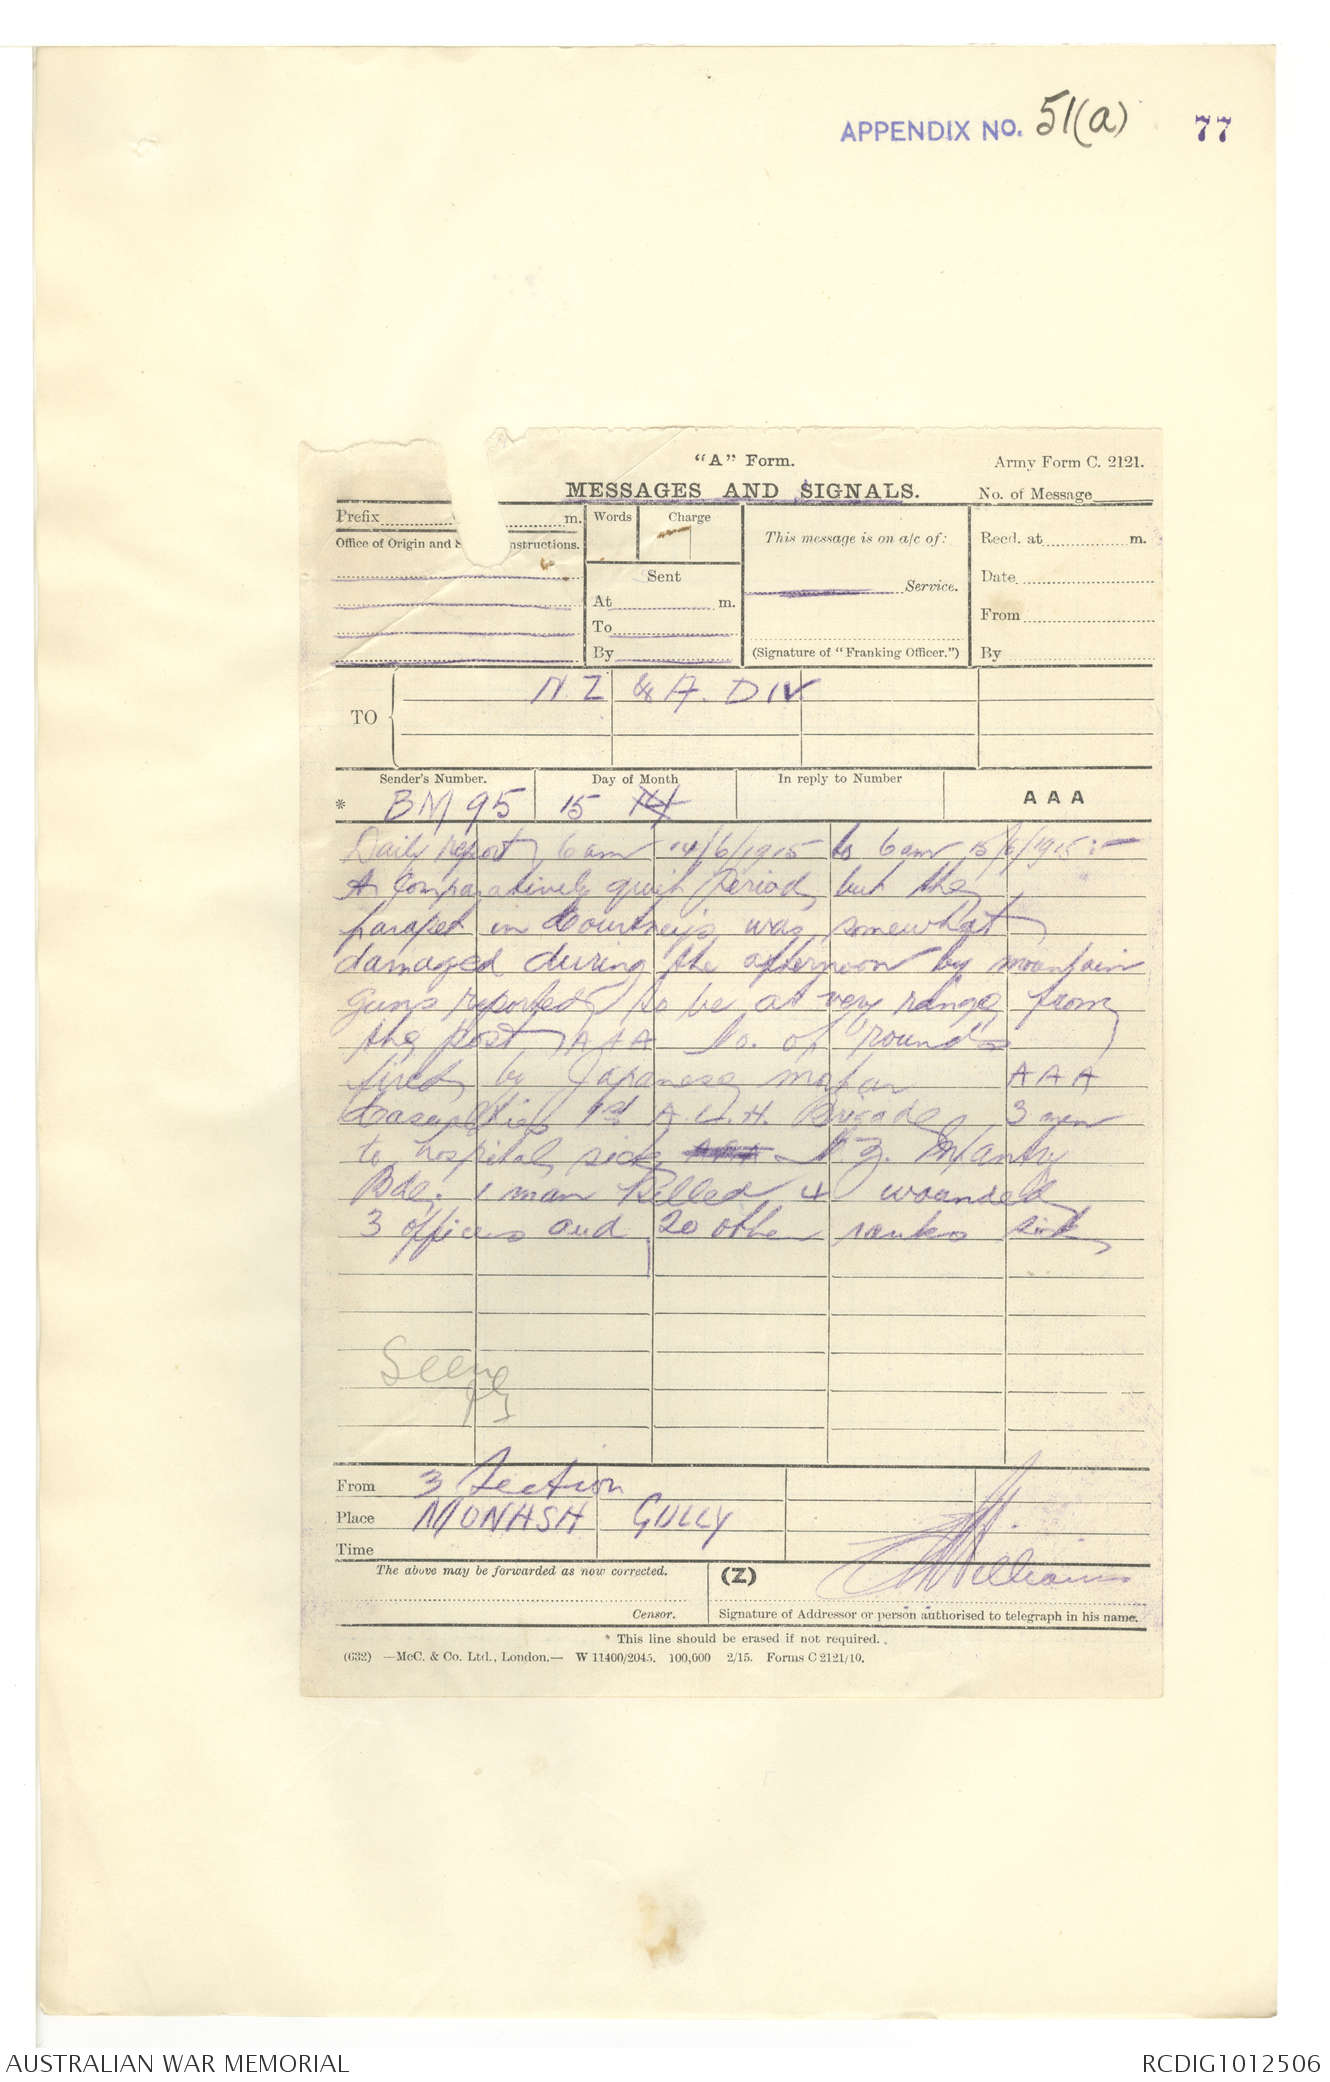 APPENDIX NO. 51(a) 77
"A" Form. Army Form C. 2121.
MESSAGES AND SIGNALS. No. of Message
Prefix m. Words Charge
This message is on a/c of: Recd. at m.
Office of Origin and S nstructions.
Sent Date
At m. Service.
To From
By (Signature of "Franking Officer.") By
TO N.Z & A. DIV
Sender's Number. Day of Month In reply to Number AAA
* BM 95 15 14
Daily report, 6 am 14/6/1915 to 6 am 15/6/1915:-
A comparatively quiet period, but the
parapet in Courtney's was somewhat
damaged during the afternoon by mountain
guns reported to be at very range from
the post, AAA No. of rounds
fired by Japanese mortar AAA
Casualties 1st A.L.H. Brigade, 3 men
to hospital, sick AAA N.Z. Infantry
Bde. 1 man killed, 4 wounded
3 officers and 20 other ranks sick
Seen
From 3 Section
Place MONASH GULLY
Time
The above may be forwarded as now corrected. (Z) Williams
Censor. Signature of Addressor or person authorised to telegraph in his name.
* This line should be erased if not required.
(632) —McC. & Co. Ltd., London.— W 11400/2045. 100,000 2/15. Forms C 2121/10.
AUSTRALIAN WAR MEMORIAL RCDIG1012506